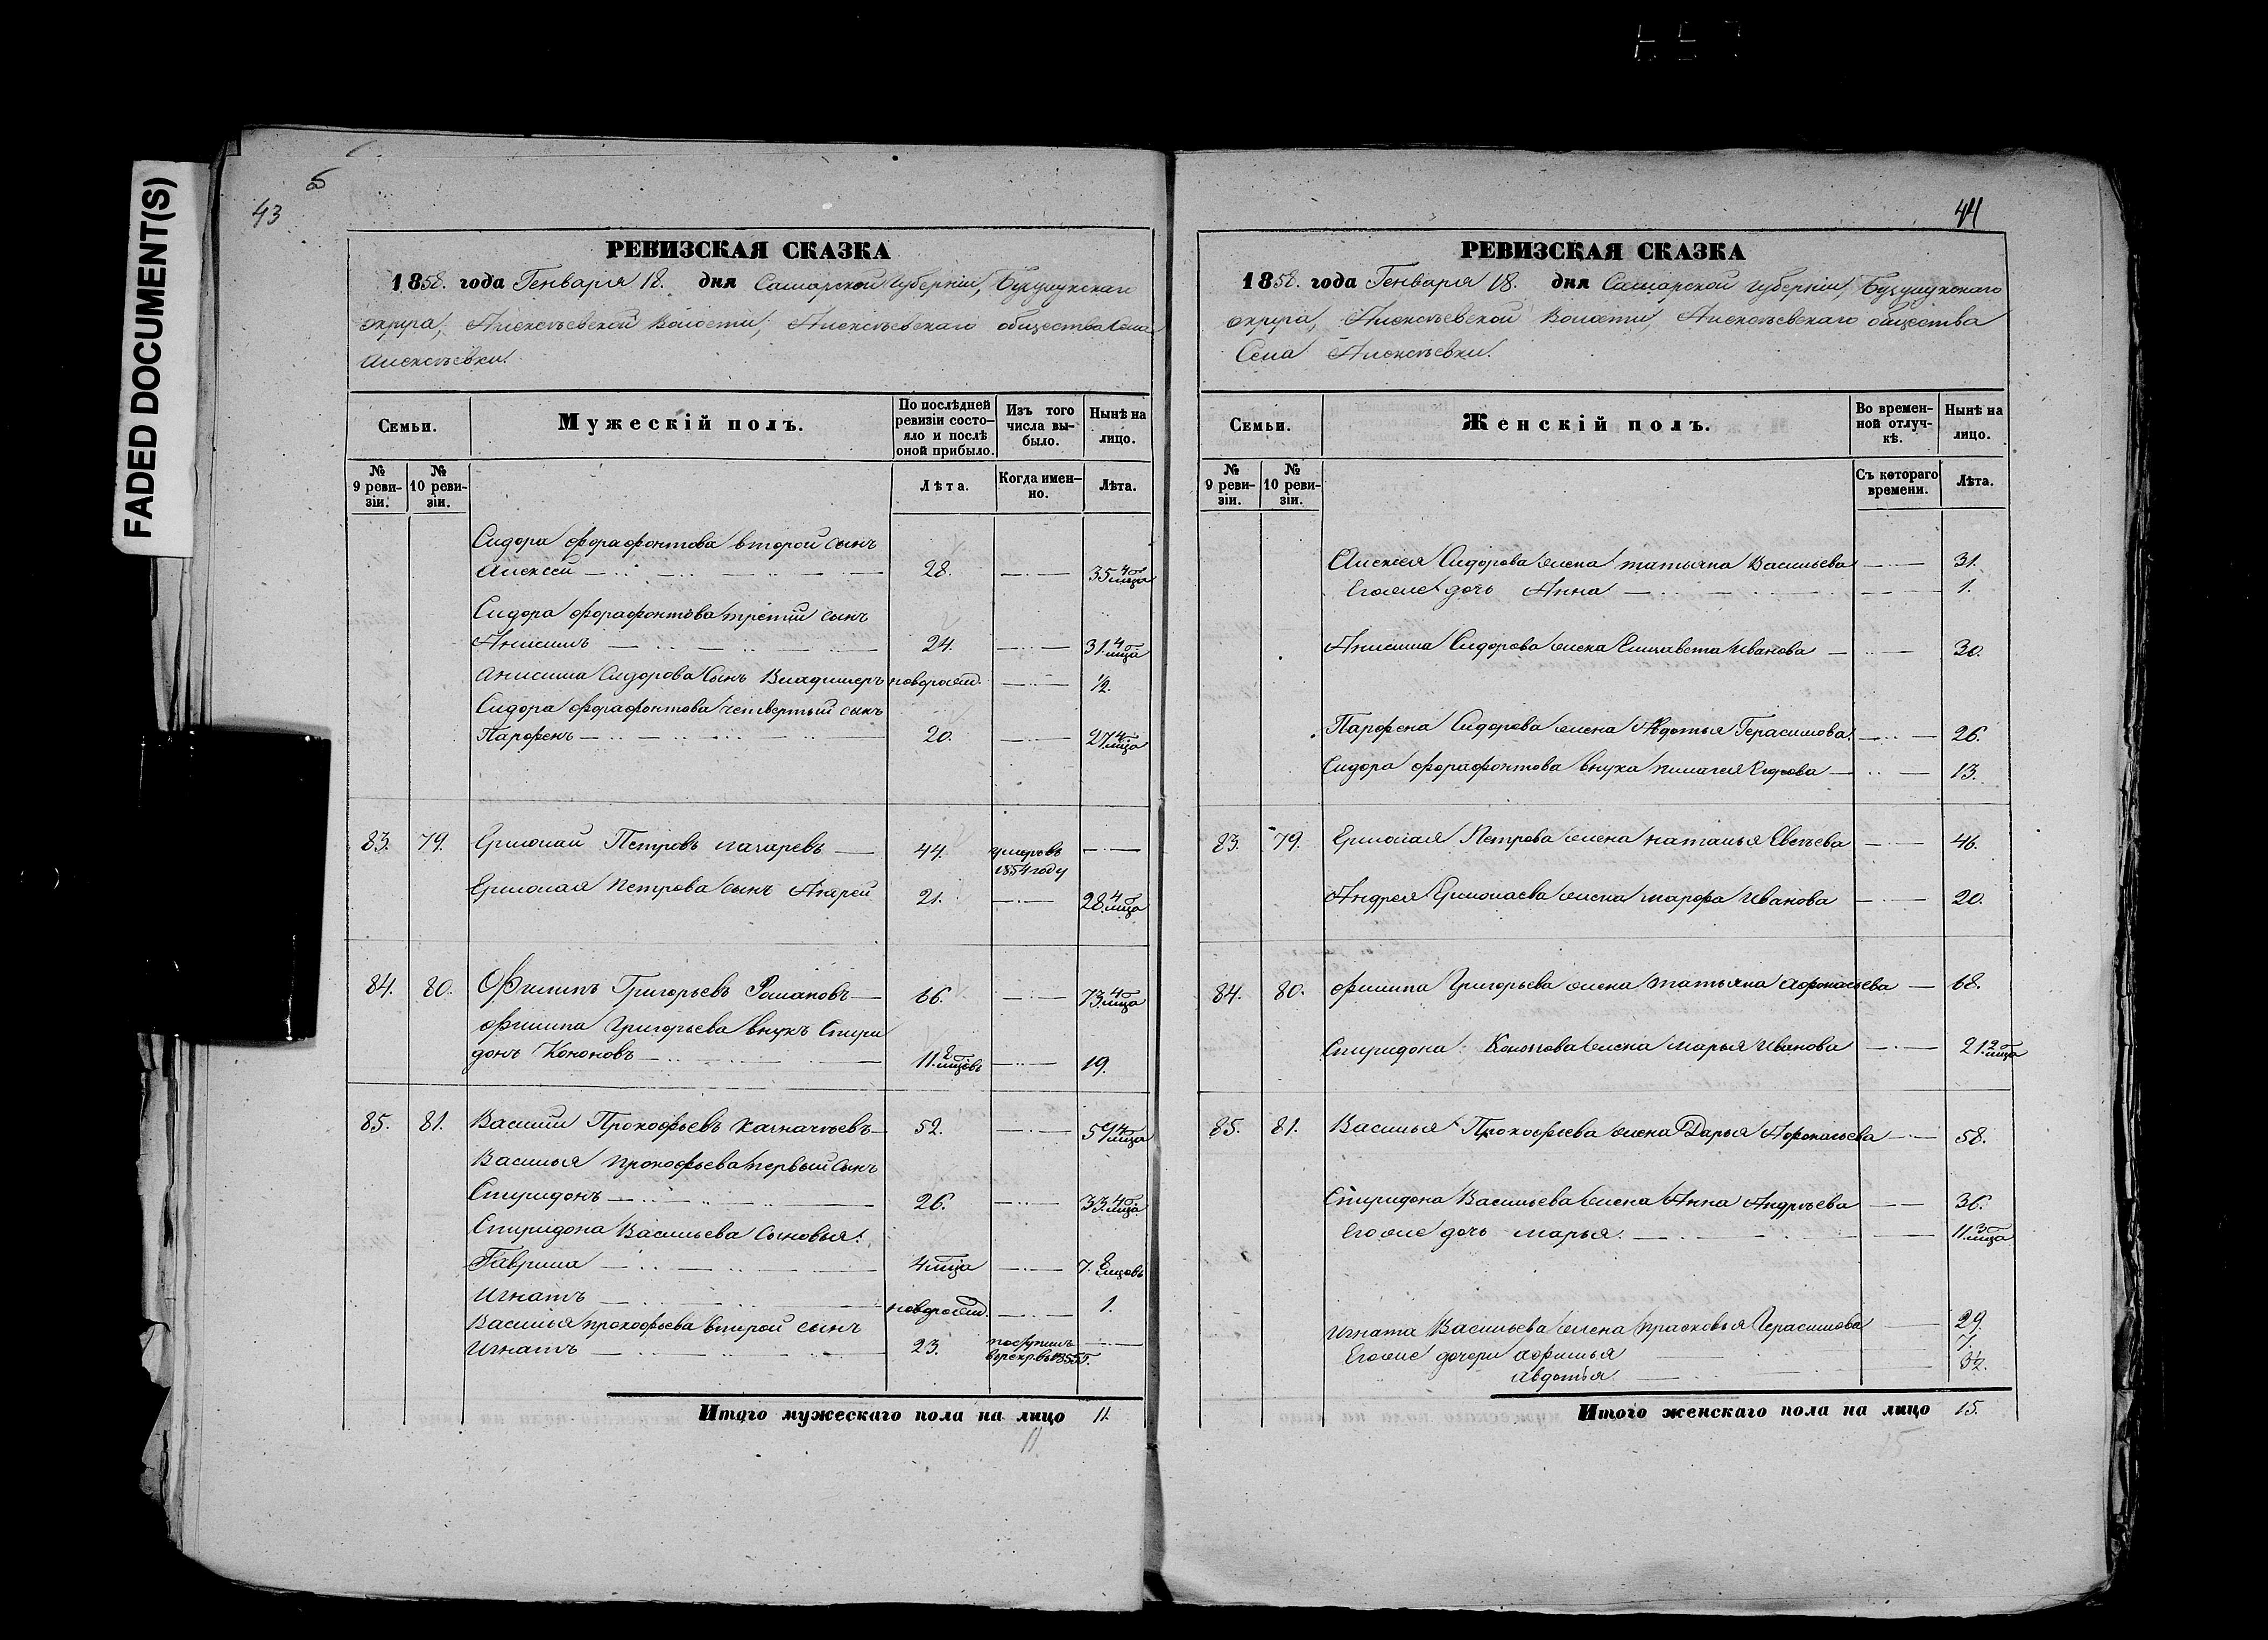 FADED DOCUMENT(S)
43
РЕВИЗСКАЯ СКАЗКА
1858. года Генваря 18. дня Самарской губернiи, Бузулукскаго
округа, Алексѣевской Волости, Алексѣевскаго общества Села
Алексѣевки.
Семьи.
Мужескій полъ.
По послѣдней ревизіи состо-яло и послѣ оной прибыло.
Изъ того числа вы-было.
Нынѣ на лицо.
№ 9 реви-зіи.
№ 10 реви-зіи.
Лѣта.
Когда имен-но.
Лѣта.
Сидора форафонтова второй сынъ
Алексѣй 28. 35 4 мца
Сидора форафонтова третiй сынъ
Анисимъ 24. 31. 4 мца
Анисима Сидорова Сынъ Владимеръ новорожд. ½.
Сидора форафонтова четвертый сынъ
Парфенъ 20. 27 4 мца
83. 79. Ермолай Петровъ 44. умеръ въ 1854 году
Ермолая Петрова сынъ Андрей 21. 28. 4 мца
84. 80. Филипъ Григорьевъ Романовъ 66. 73. 4 мца
филипа Григорьева внукъ Спири
донъ Кононовъ 11. 8 мцовъ 19.
85. 81. Василий Прокофьевъ Казначѣевъ 52. 59 4 мца
Василья Прокофьева первый сынъ
Спиридонъ 26. 33. 4 мца
Спиридона Васильева Сыновья:
Гаврила 4 мца 7. 8 мцовъ
Игнатъ новорожд. 1.
Василья Прокофьева второй сынъ
Игнатъ 23. поступилъ въ рекр. въ 1855 г.
Итого мужескаго пола на лицо 11.
11
44
РЕВИЗСКАЯ СКАЗКА
1858. года Генваря 18. дня Самарской губернiи, Бузулукскаго
округа, Алексѣевской Волости, Алексѣевскаго общества
Села Алексѣевки.
Семьи.
Женскій полъ.
Во времен-ной отлуч-кѣ.
Нынѣ на лицо.
№ 9 реви-зіи.
№ 10 реви-зіи.
Съ котораго времени.
Лѣта.
Алексѣя Сидорова жена татьяна Васильева 31.
Егоже дочь Анна 1.
Анисима Сидорова жена Елизавета Иванова 30.
Парфена Сидорова жена Авдотья Герасимова 26.
Сидора форафонтова внука пилагея 13.
83. 79. Ермолая Петрова жена наталья 46.
Андрея Ермолаева жена марфа Иванова 20.
84. 80. филипа Григорьева жена татьяна Афонасьева 68.
Спиридона Кононова жена марья Иванова 21. 2 мца
85. 81. Василья Прокофьева жена Дарья Афонасьева 58.
Спиридона Васильева жена Анна Андрѣева 36.
Егоже дочь марья. 11. 3 мца
Игната Васильева жена прасковья Герасимова 29.
Егоже дочери афимья 7.
авдотья 3½.
Итого женскаго пола на лицо 15.
15